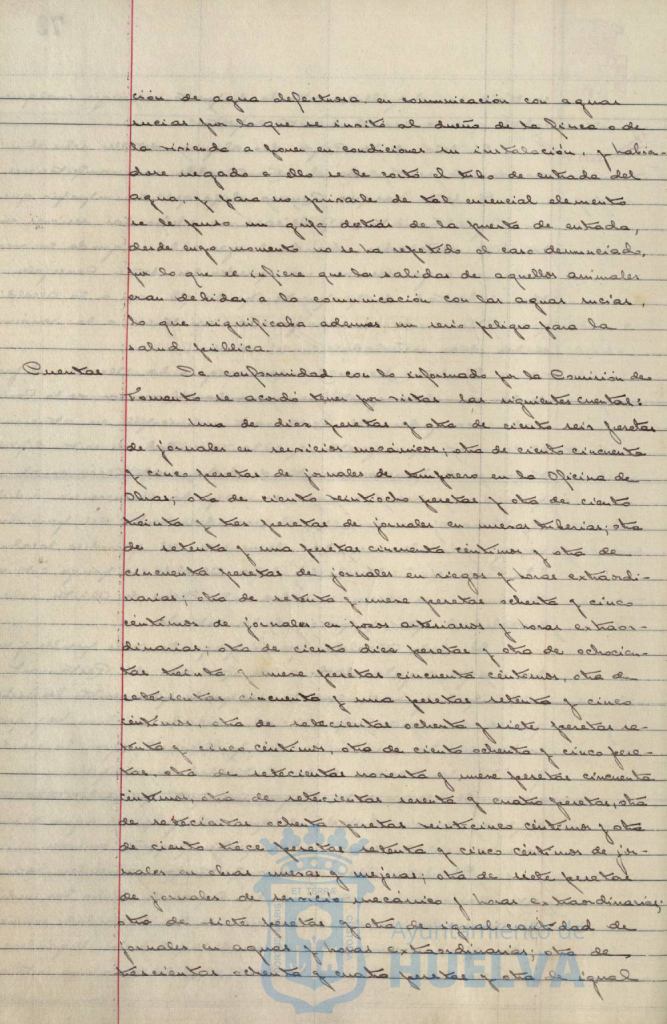 ción de agua defectuosa, en comunicación con aguas
sucias por lo que se invitó al dueño de la finca o de
la vivienda a poner en condiciones su instalación, y habien-
dose negado a ello se le cortó el tubo de entrada del
agua, y para no privarle de tal esencial elemento
se le puso un grifo detrás de la puerta de entrada,
desde cuyo momento no se ha repetido el caso denunciado,
por lo que se infiere que las salidas de aquellos animales
eran debidas a la comunicación con las aguas sucias,
lo que significaba ademas un serio peligro para la
salud pública.
Cuentas De conformidad con lo informado por la Comisión de
Fomento se acordó tener por vistas las siguientes cuentas:
Una de diez pesetas y otra de ciento seis pesetas
de jornales en servicios mecánicos; otra de ciento cincuenta
y cinco pesetas de jornales de temporero en la Oficina de
Obras; otra de ciento veintiocho pesetas y otra de ciento
treinta y tres pesetas de jornales en nuevas tuberias; otra
de setenta y una pesetas cincuenta céntimos y otra de
cincuenta pesetas de jornales en riegos y horas extraordi-
narias; otra de setenta y nueve pesetas ochenta y cinco
céntimos de jornales en pozos artesianos y horas extraor-
dinarias; otra de ciento diez pesetas y otra de ochocien-
tas treinta y nueve pesetas cincuenta céntimos, otra de
setecientas cincuenta y una pesetas setenta y cinco
céntimos, otra de setecientas ochenta y siete pesetas se-
tenta y cinco céntimos, otra de ciento ochenta y cinco pese-
tas, otra de setecientas noventa y nueve pesetas cincuenta
céntimos, otra de setecientas sesenta y cuatro pesetas, otra
de setecientas ochenta pesetas veinticinco céntimos y otra
de ciento trece pesetas setenta y cinco céntimos de jor-
nales en obras nuevas y mejoras; otra de siete pesetas
de jornales de servicio mecánico y horas extraordinarias;
otra de siete pesetas y otra de igual cantidad de
jornales en aguas y horas extraordinarias; otra de
trescientas ochenta y cuatro pesetas y otra de igual
Ayuntamiento de
HUELVA